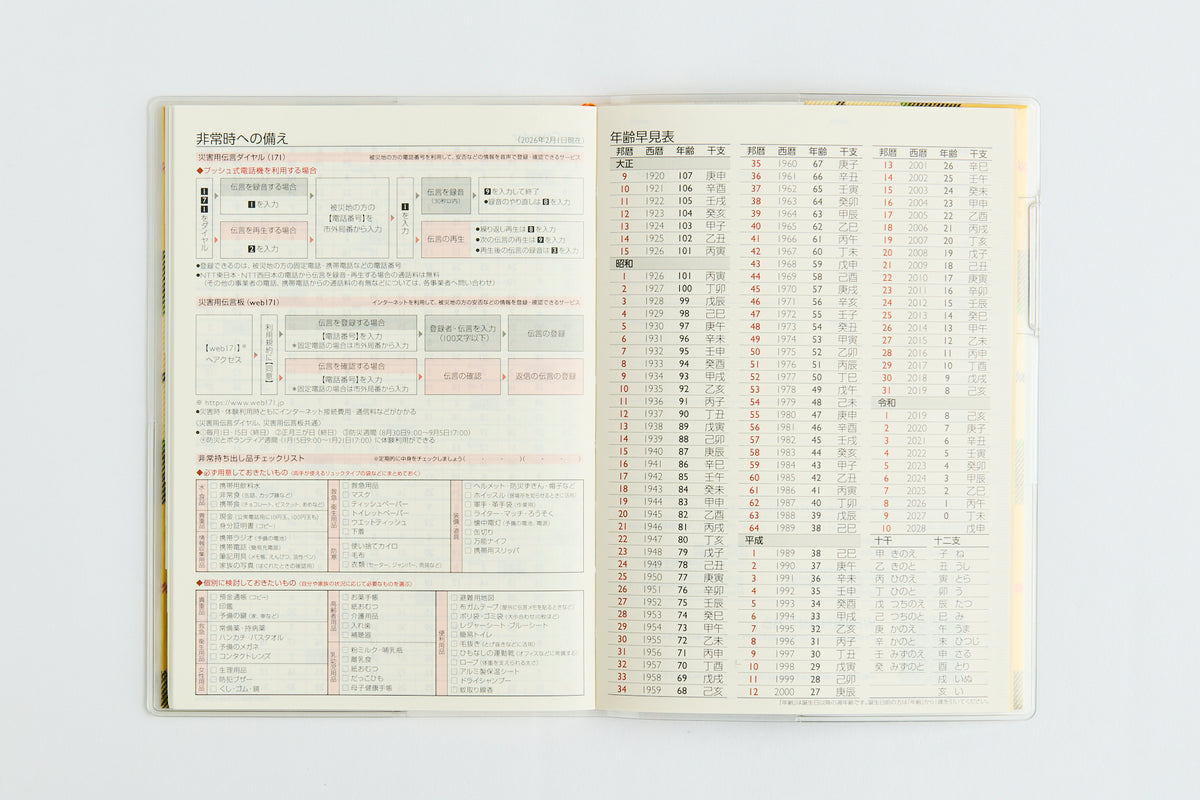 非常時への備え
(2026年2月1日現在)
災害用伝言ダイヤル(171)
被災地の方の電話番号を利用して、安否などの情報を音声で登録・確認できるサービス
◆プッシュ式電話機を利用する場合
171をダイヤル
伝言を録音する場合
1を入力
伝言を再生する場合
2を入力
被災地の方の
【電話番号】を
市外局番から入力
1を入力
伝言を録音
(30秒以内)
9を入力して終了
●録音のやり直しは8を入力
伝言の再生
●繰り返し再生は8を入力
●次の伝言の再生は9を入力
●再生後の伝言の録音は3を入力
●登録できるのは、被災地の方の固定電話・携帯電話などの電話番号
●NTT東日本・NTT西日本の電話から伝言を録音・再生する場合の通話料は無料
(その他の事業者の電話、携帯電話からの通話料の有無などについては、各事業者へ問い合わせ)
災害用伝言板(web171)
インターネットを利用して、被災地の方の安否などの情報を登録・確認できるサービス
【web171】※
へアクセス
利用規約に【同意】
伝言を登録する場合
【電話番号】を入力
※固定電話の場合は市外局番から入力
登録者・伝言を入力
(100文字以下)
伝言の登録
伝言を確認する場合
【電話番号】を入力
※固定電話の場合は市外局番から入力
伝言の確認
返信の伝言の登録
※ https://www.web171.jp
●災害時・体験利用時ともにインターネット接続費用・通信料などがかかる
〈災害用伝言ダイヤル、災害用伝言板共通〉
●①毎月1日・15日(終日) ②正月三が日(終日) ③防災週間(8月30日9:00〜9月5日17:00)
④防災とボランティア週間(1月15日9:00〜1月21日17:00)に体験利用ができる
非常持ち出し品チェックリスト
※定期的に中身をチェックしましょう( ・ ・ ・ ・ )
◆必ず用意しておきたいもの(両手が使えるリュックタイプの袋などにまとめておく)
水・食品
□携帯用飲料水
□非常食(缶詰、カップ麺など)
□携帯食(チョコレート、ビスケット、あめなど)
貴重品
□現金(公衆電話用に10円玉、100円玉も)
□身分証明書(コピー)
情報収集用品
□携帯ラジオ(予備の電池)
□携帯電話(簡易充電器)
□筆記用具(メモ帳、えんぴつ、油性ペン)
□家族の写真(はぐれたときの確認用)
救急・衛生用品
□救急用品
□マスク
□ティッシュペーパー
□トイレットペーパー
□ウエットティッシュ
□下着
防寒
□使い捨てカイロ
□毛布
□衣類(セーター、ジャンパー、雨具など)
装備・道具
□ヘルメット・防災ずきん・帽子など
□ホイッスル(居場所を知らせるときに活用)
□軍手・革手袋(作業用)
□ライター・マッチ・ろうそく
□懐中電灯(予備の電池、電源)
□缶切り
□万能ナイフ
□携帯用スリッパ
◆個別に検討しておきたいもの(自分や家族の状況に応じて必要なものを選ぶ)
貴重品
□預金通帳(コピー)
□印鑑
□予備の鍵(家、車など)
救急・衛生用品
□常備薬・持病薬
□ハンカチ・バスタオル
□予備のメガネ
□コンタクトレンズ
女性用品
□生理用品
□防犯ブザー
□くし・ゴム・鏡
高齢者用品
□お薬手帳
□紙おむつ
□介護用品
□入れ歯
□補聴器
乳幼児用品
□粉ミルク・哺乳瓶
□離乳食
□紙おむつ
□だっこひも
□母子健康手帳
便利用品
□避難用地図
□布ガムテープ(屋外に伝言メモを貼るときなど)
□ポリ袋・ゴミ袋(大小合わせ10枚ほど)
□レジャーシート・ブルーシート
□簡易トイレ
□毛抜き(とげ抜きなどに活用)
□ひもなしの運動靴(オフィスなどに常備する)
□ロープ(体重を支えられる太さ)
□アルミ製保温シート
□ドライシャンプー
□蚊取り線香
年齢早見表
邦暦 西暦 年齢 干支
大正
9 1920 107 庚申
10 1921 106 辛酉
11 1922 105 壬戌
12 1923 104 癸亥
13 1924 103 甲子
14 1925 102 乙丑
15 1926 101 丙寅
昭和
1 1926 101 丙寅
2 1927 100 丁卯
3 1928 99 戊辰
4 1929 98 己巳
5 1930 97 庚午
6 1931 96 辛未
7 1932 95 壬申
8 1933 94 癸酉
9 1934 93 甲戌
10 1935 92 乙亥
11 1936 91 丙子
12 1937 90 丁丑
13 1938 89 戊寅
14 1939 88 己卯
15 1940 87 庚辰
16 1941 86 辛巳
17 1942 85 壬午
18 1943 84 癸未
19 1944 83 甲申
20 1945 82 乙酉
21 1946 81 丙戌
22 1947 80 丁亥
23 1948 79 戊子
24 1949 78 己丑
25 1950 77 庚寅
26 1951 76 辛卯
27 1952 75 壬辰
28 1953 74 癸巳
29 1954 73 甲午
30 1955 72 乙未
31 1956 71 丙申
32 1957 70 丁酉
33 1958 69 戊戌
34 1959 68 己亥
邦暦 西暦 年齢 干支
35 1960 67 庚子
36 1961 66 辛丑
37 1962 65 壬寅
38 1963 64 癸卯
39 1964 63 甲辰
40 1965 62 乙巳
41 1966 61 丙午
42 1967 60 丁未
43 1968 59 戊申
44 1969 58 己酉
45 1970 57 庚戌
46 1971 56 辛亥
47 1972 55 壬子
48 1973 54 癸丑
49 1974 53 甲寅
50 1975 52 乙卯
51 1976 51 丙辰
52 1977 50 丁巳
53 1978 49 戊午
54 1979 48 己未
55 1980 47 庚申
56 1981 46 辛酉
57 1982 45 壬戌
58 1983 44 癸亥
59 1984 43 甲子
60 1985 42 乙丑
61 1986 41 丙寅
62 1987 40 丁卯
63 1988 39 戊辰
64 1989 38 己巳
平成
1 1989 38 己巳
2 1990 37 庚午
3 1991 36 辛未
4 1992 35 壬申
5 1993 34 癸酉
6 1994 33 甲戌
7 1995 32 乙亥
8 1996 31 丙子
9 1997 30 丁丑
10 1998 29 戊寅
11 1999 28 己卯
12 2000 27 庚辰
邦暦 西暦 年齢 干支
13 2001 26 辛巳
14 2002 25 壬午
15 2003 24 癸未
16 2004 23 甲申
17 2005 22 乙酉
18 2006 21 丙戌
19 2007 20 丁亥
20 2008 19 戊子
21 2009 18 己丑
22 2010 17 庚寅
23 2011 16 辛卯
24 2012 15 壬辰
25 2013 14 癸巳
26 2014 13 甲午
27 2015 12 乙未
28 2016 11 丙申
29 2017 10 丁酉
30 2018 9 戊戌
31 2019 8 己亥
令和
1 2019 8 己亥
2 2020 7 庚子
3 2021 6 辛丑
4 2022 5 壬寅
5 2023 4 癸卯
6 2024 3 甲辰
7 2025 2 乙巳
8 2026 1 丙午
9 2027 0 丁未
10 2028 戊申
十干 十二支
甲 きのえ 子 ね
乙 きのと 丑 うし
丙 ひのえ 寅 とら
丁 ひのと 卯 う
戊 つちのえ 辰 たつ
己 つちのと 巳 み
庚 かのえ 午 うま
辛 かのと 未 ひつじ
壬 みずのえ 申 さる
癸 みずのと 酉 とり
戌 いぬ
亥 い
「年齢」は誕生日以降の満年齢です。誕生日前の方は「年齢」から1歳を引いてください。